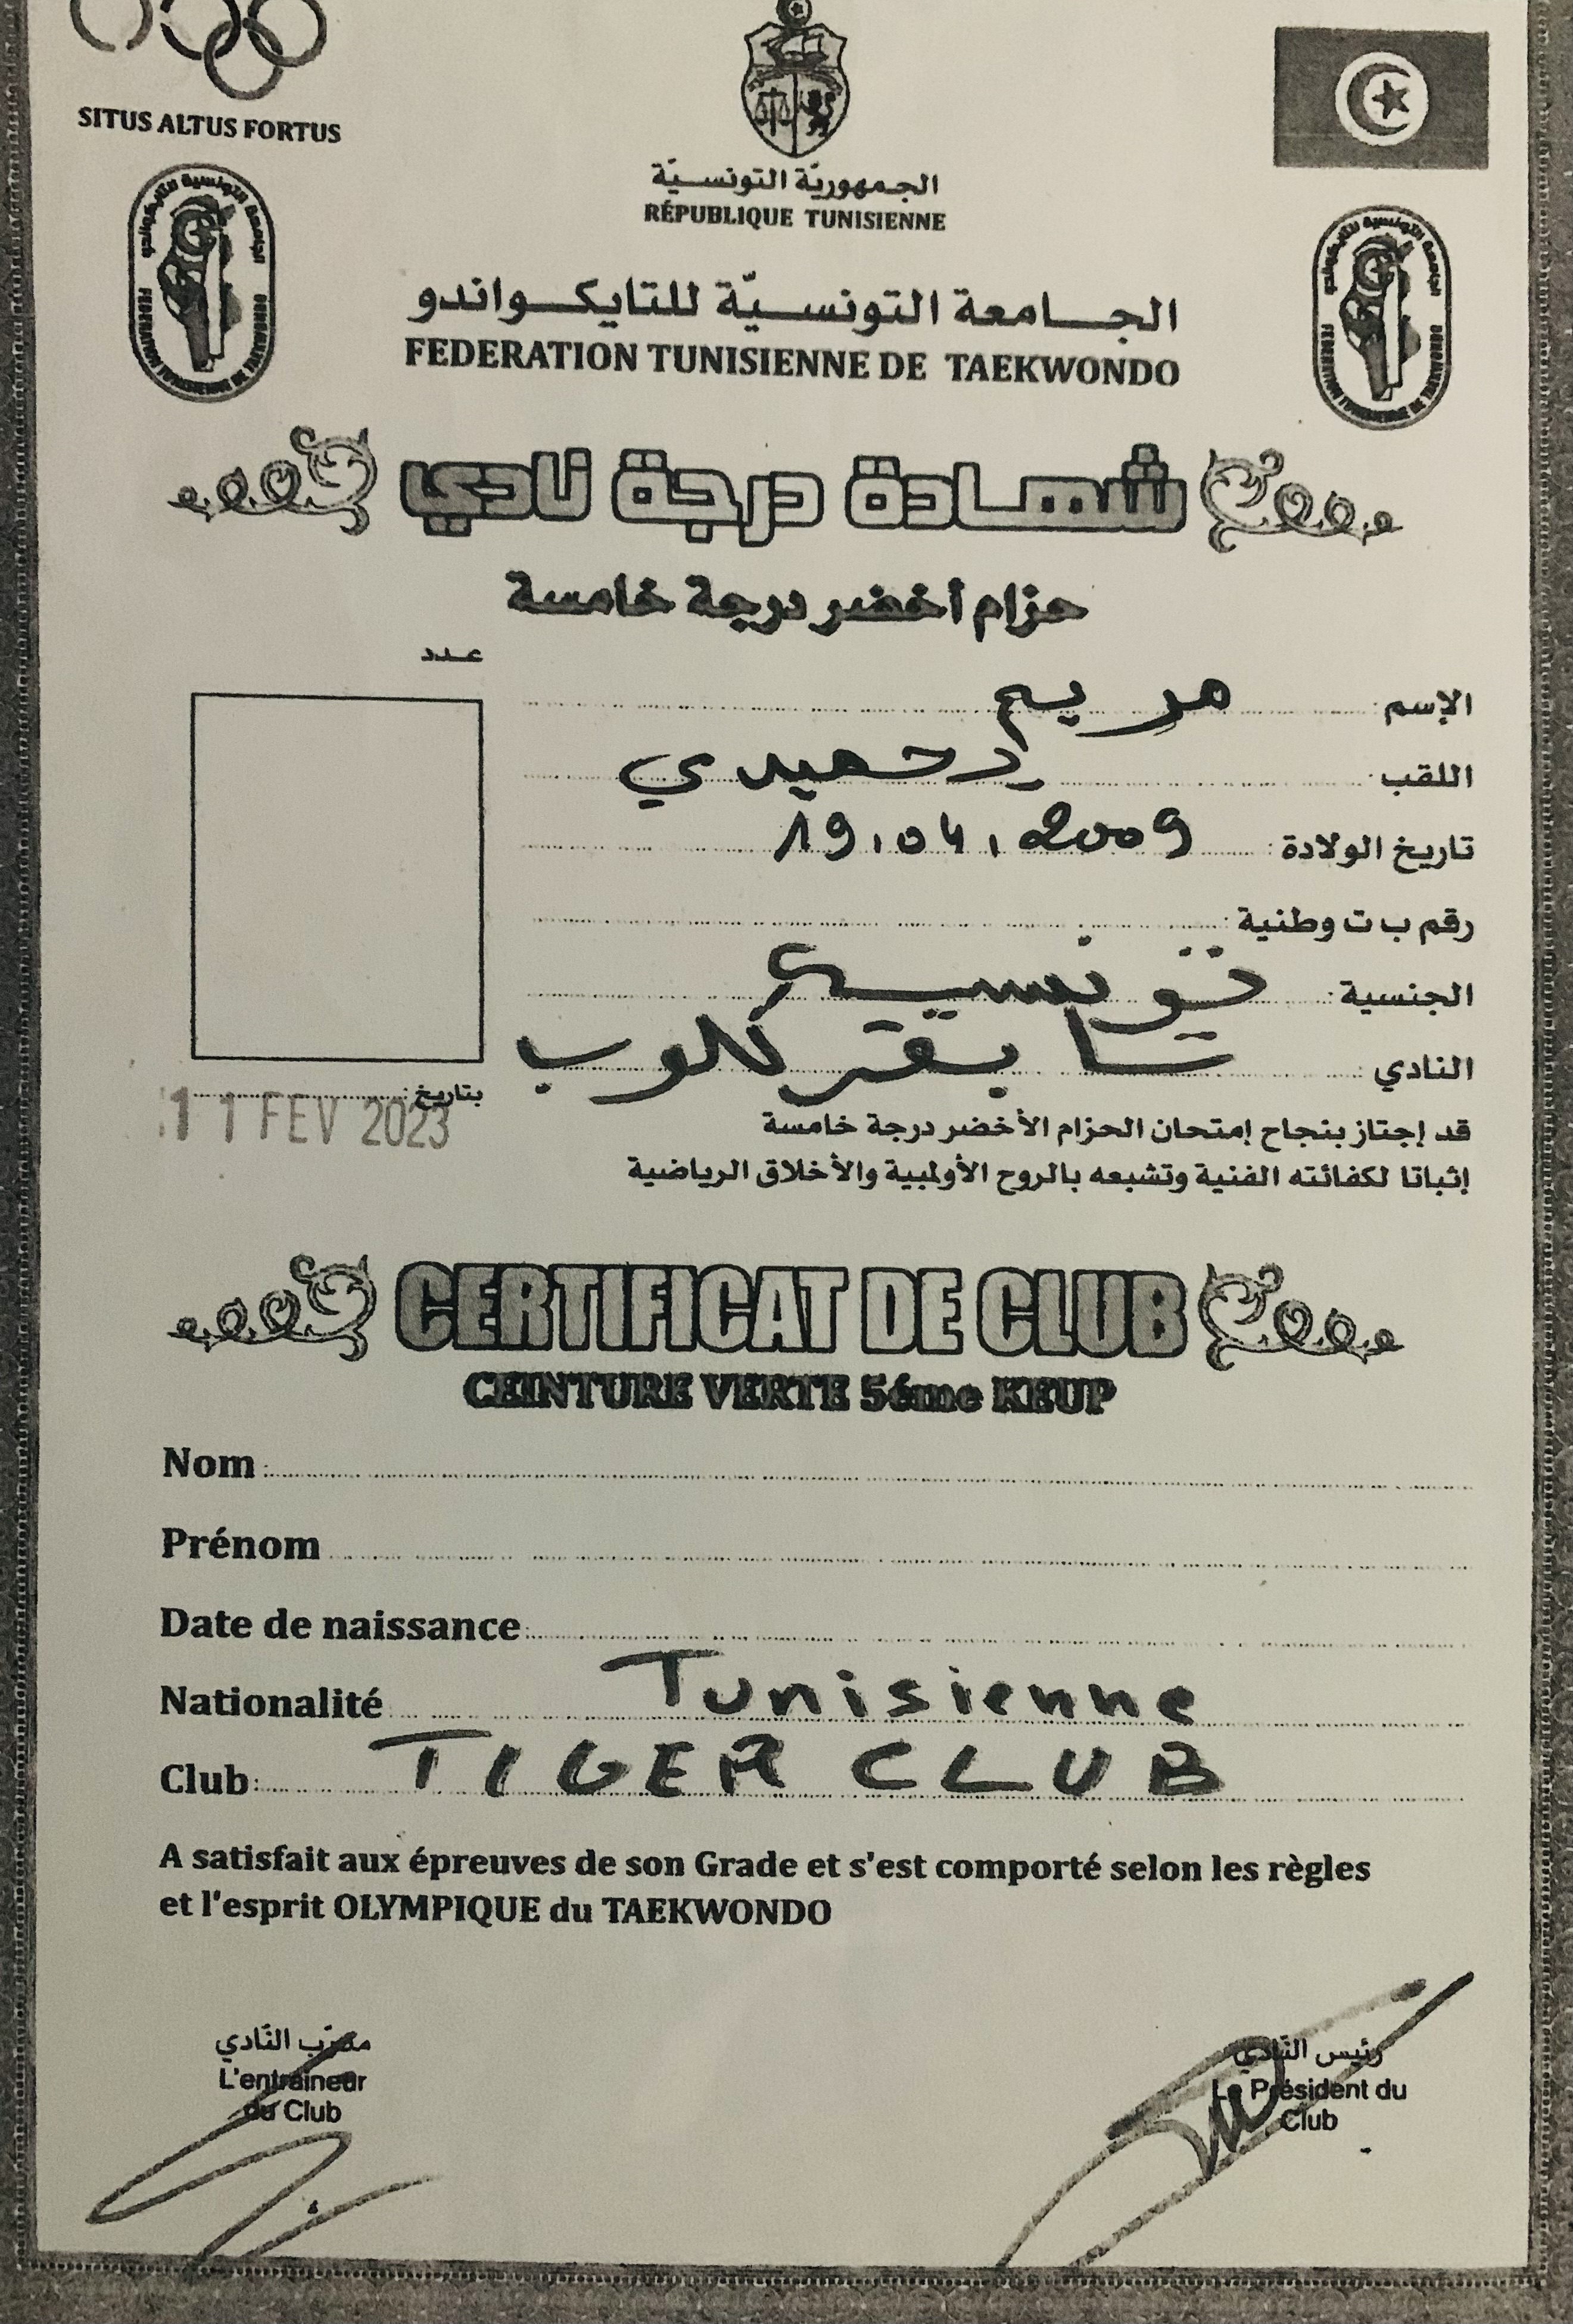 SITUS ALTUS FORTUS
الجمهورية التونسية
RÉPUBLIQUE TUNISIENNE
الجامعة التونسية للتايكواندو
FEDERATION TUNISIENNE DE TAEKWONDO
شهادة درجة نادي
حزام أخضر درجة خامسة
عدد
الإسم: مريم
اللقب: دحميدي
تاريخ الولادة: 19.04.2009
رقم ب ت وطنية:
الجنسية: تونسية
النادي: تايقر كلوب
بتاريخ: 11 FEV 2023
قد إجتاز بنجاح إمتحان الحزام الأخضر درجة خامسة
إثباتا لكفائته الفنية وتشبعه بالروح الأولمبية والأخلاق الرياضية
CERTIFICAT DE CLUB
CEINTURE VERTE 5éme KEUP
Nom:
Prénom
Date de naissance:
Nationalité Tunisienne
Club: TIGER CLUB
A satisfait aux épreuves de son Grade et s'est comporté selon les règles
et l'esprit OLYMPIQUE du TAEKWONDO
مدرّب النّادي
L'entraineur
du Club
رئيس النّادي
Le Président du
Club